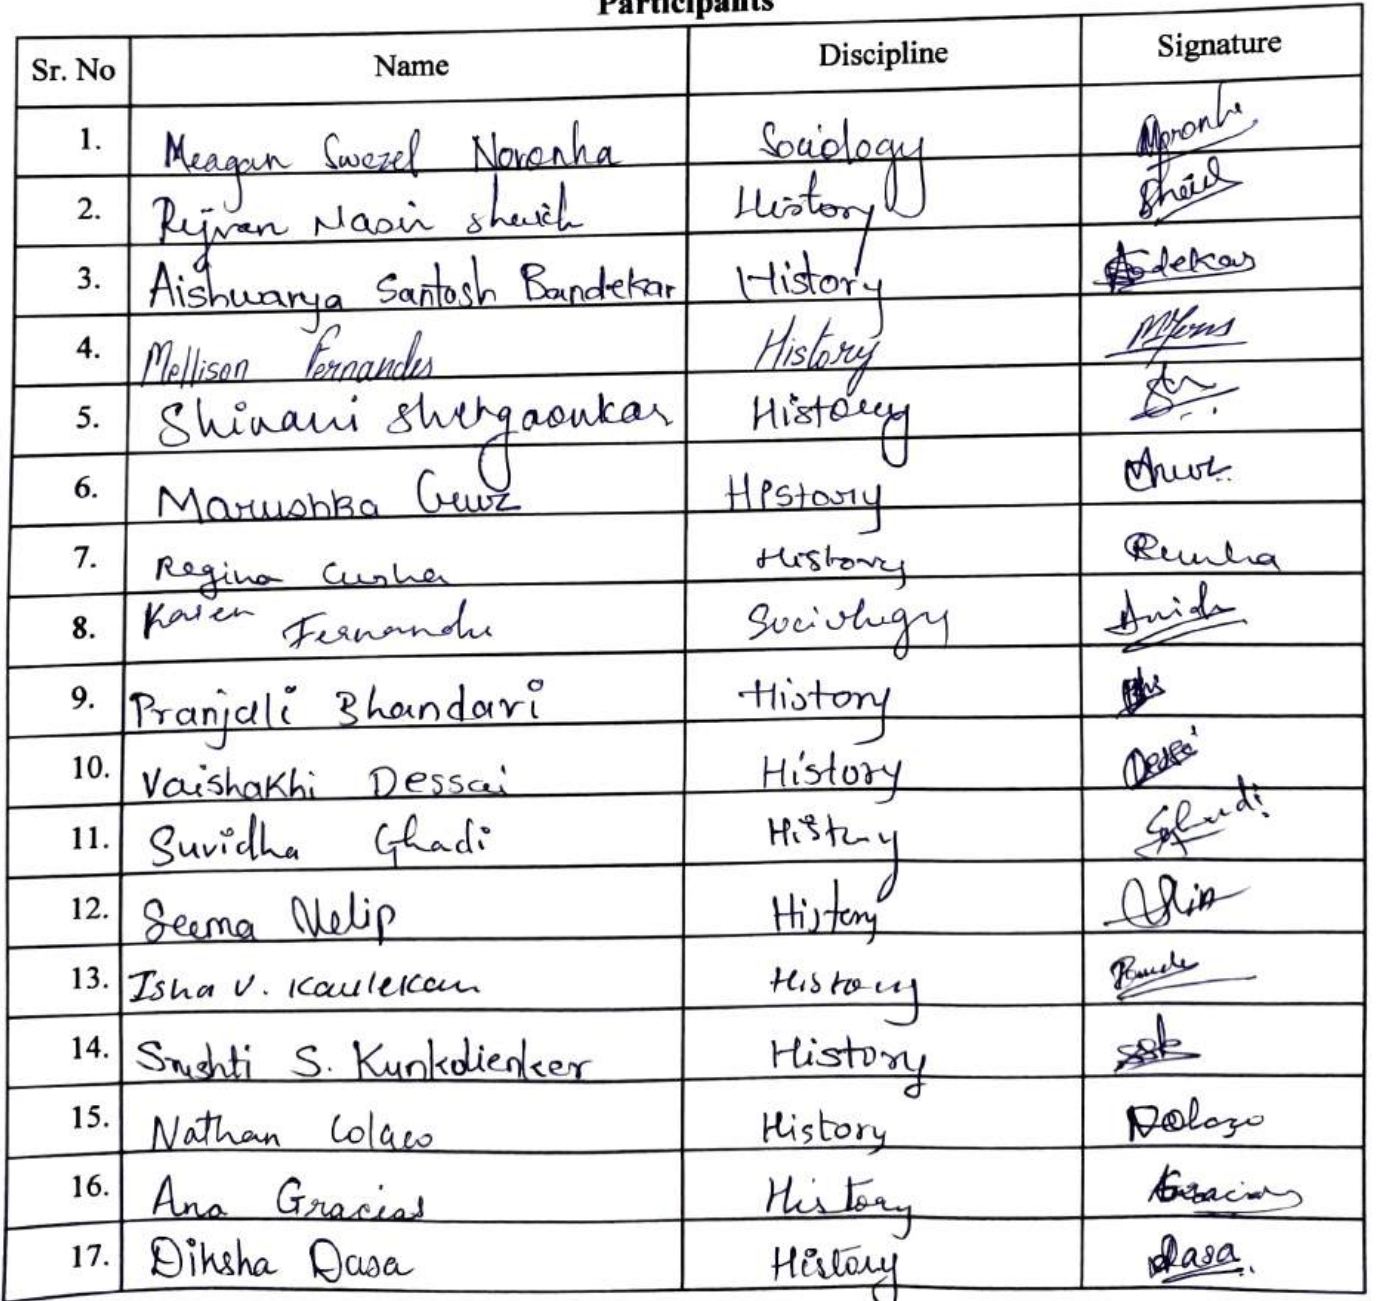 Participants
Sr. No Name Discipline Signature
1. Meagan Swezel Noronha Sociology Noronha
2. Rijvan Nasir Sheikh History Sheikh
3. Aishwarya Santosh Bandekar History
4. Mellison Fernandes History
5. Shivani Shergaonkar History
6. Marushka Cruz History
7. Regina Cunha History
8. Karen Fernandes Sociology
9. Pranjali Bhandari History
10. Vaishakhi Dessai History Dessai
11. Suvidha Ghadi History Ghadi
12. Seema Velip History
13. Isha V. Kaulekar History
14. Srushti S. Kunkolienker History SSK
15. Nathan Colaco History
16. Ana Gracias History Gracias
17. Diksha Dasa History Dasa